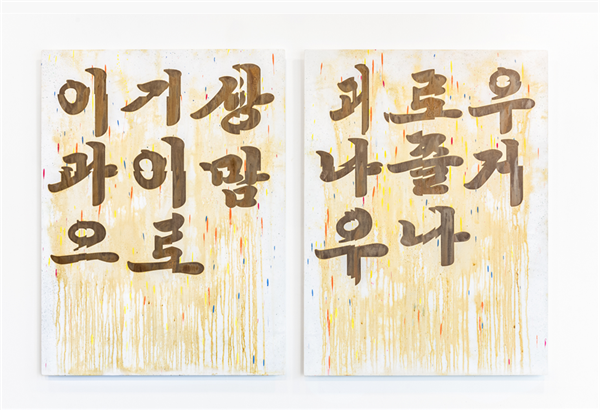 이기상
과이맘
으로
괴로우
나즐거
우나